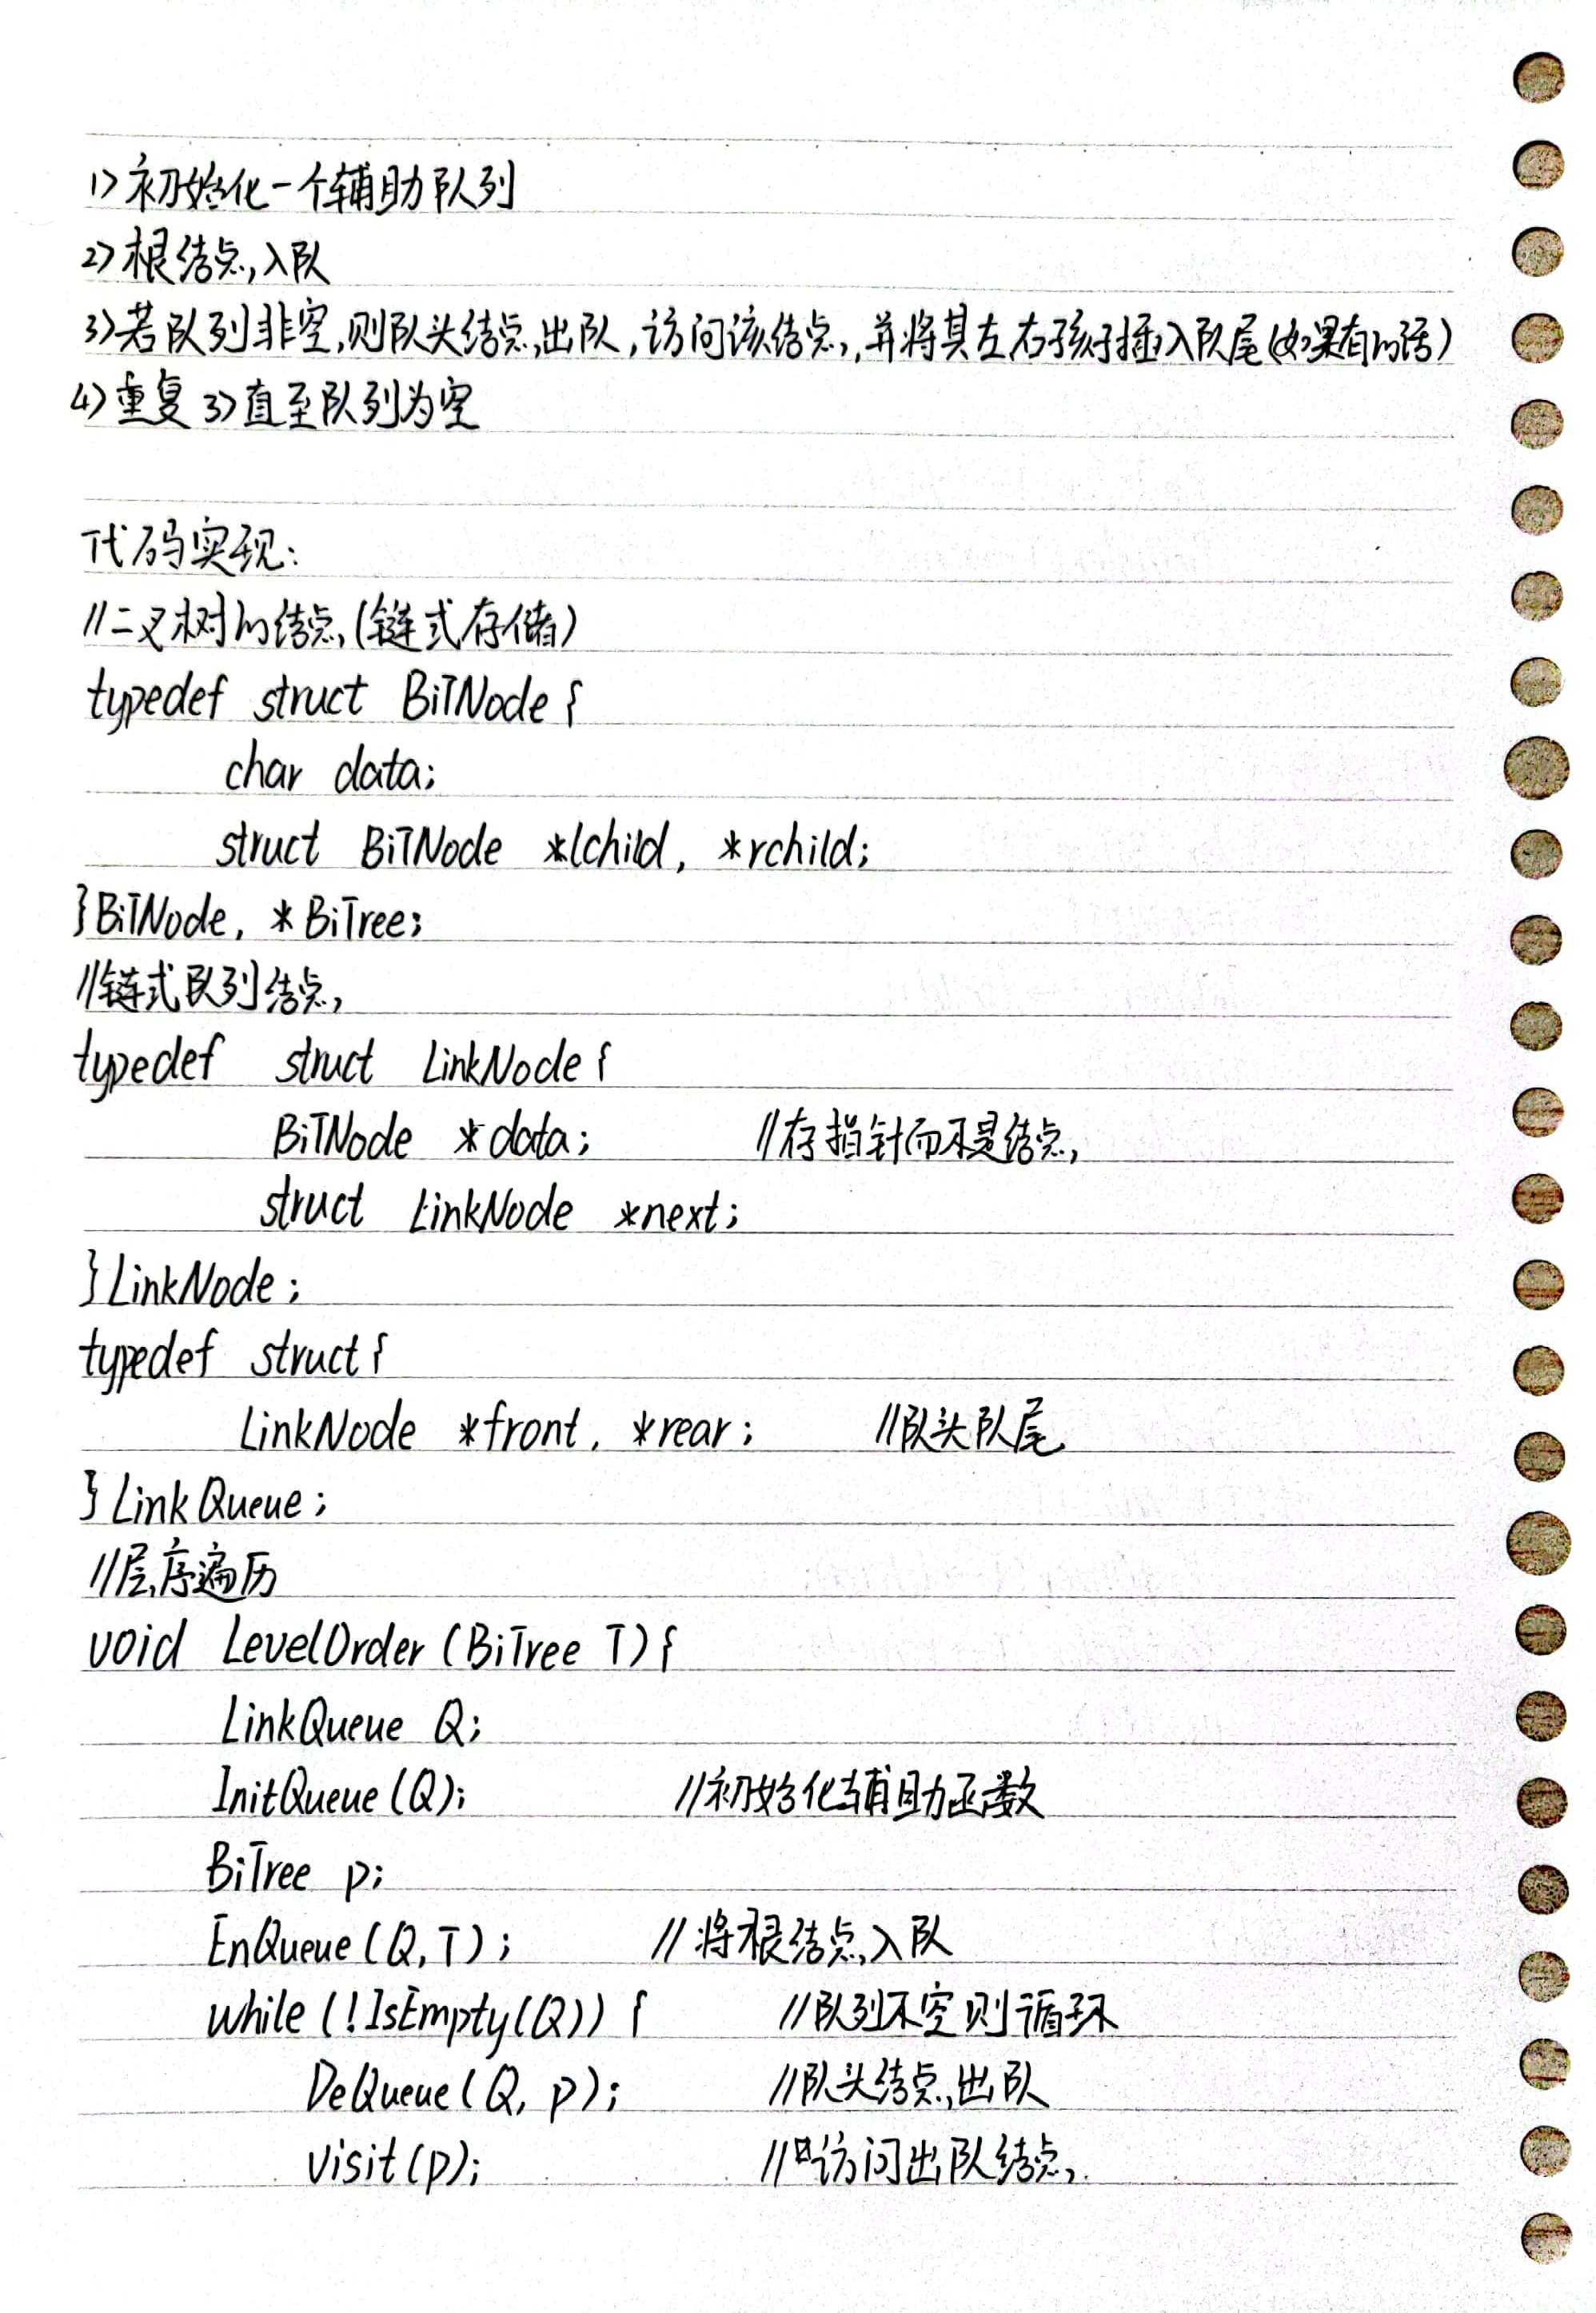 1)初始化一个辅助队列
2)根结点入队
3)若队列非空,则队头结点出队,访问该结点,并将其左右孩子插入队尾(如果有的话)
4)重复3)直至队列为空
代码实现:
//二叉树的结点(链式存储)
typedef struct BiTNode {
char data;
struct BiTNode *lchild, *rchild;
}BiTNode, *BiTree;
//链式队列结点
typedef struct LinkNode {
BiTNode *data; //存指针而不是结点
struct LinkNode *next;
}LinkNode;
typedef struct {
LinkNode *front, *rear; //队头队尾
}LinkQueue;
//层序遍历
void LevelOrder (BiTree T) {
LinkQueue Q;
InitQueue (Q); //初始化辅助函数
BiTree p;
EnQueue (Q, T); //将根结点入队
while (!IsEmpty(Q)) { //队列不空则循环
DeQueue (Q, p); //队头结点出队
visit (p); //访问出队结点